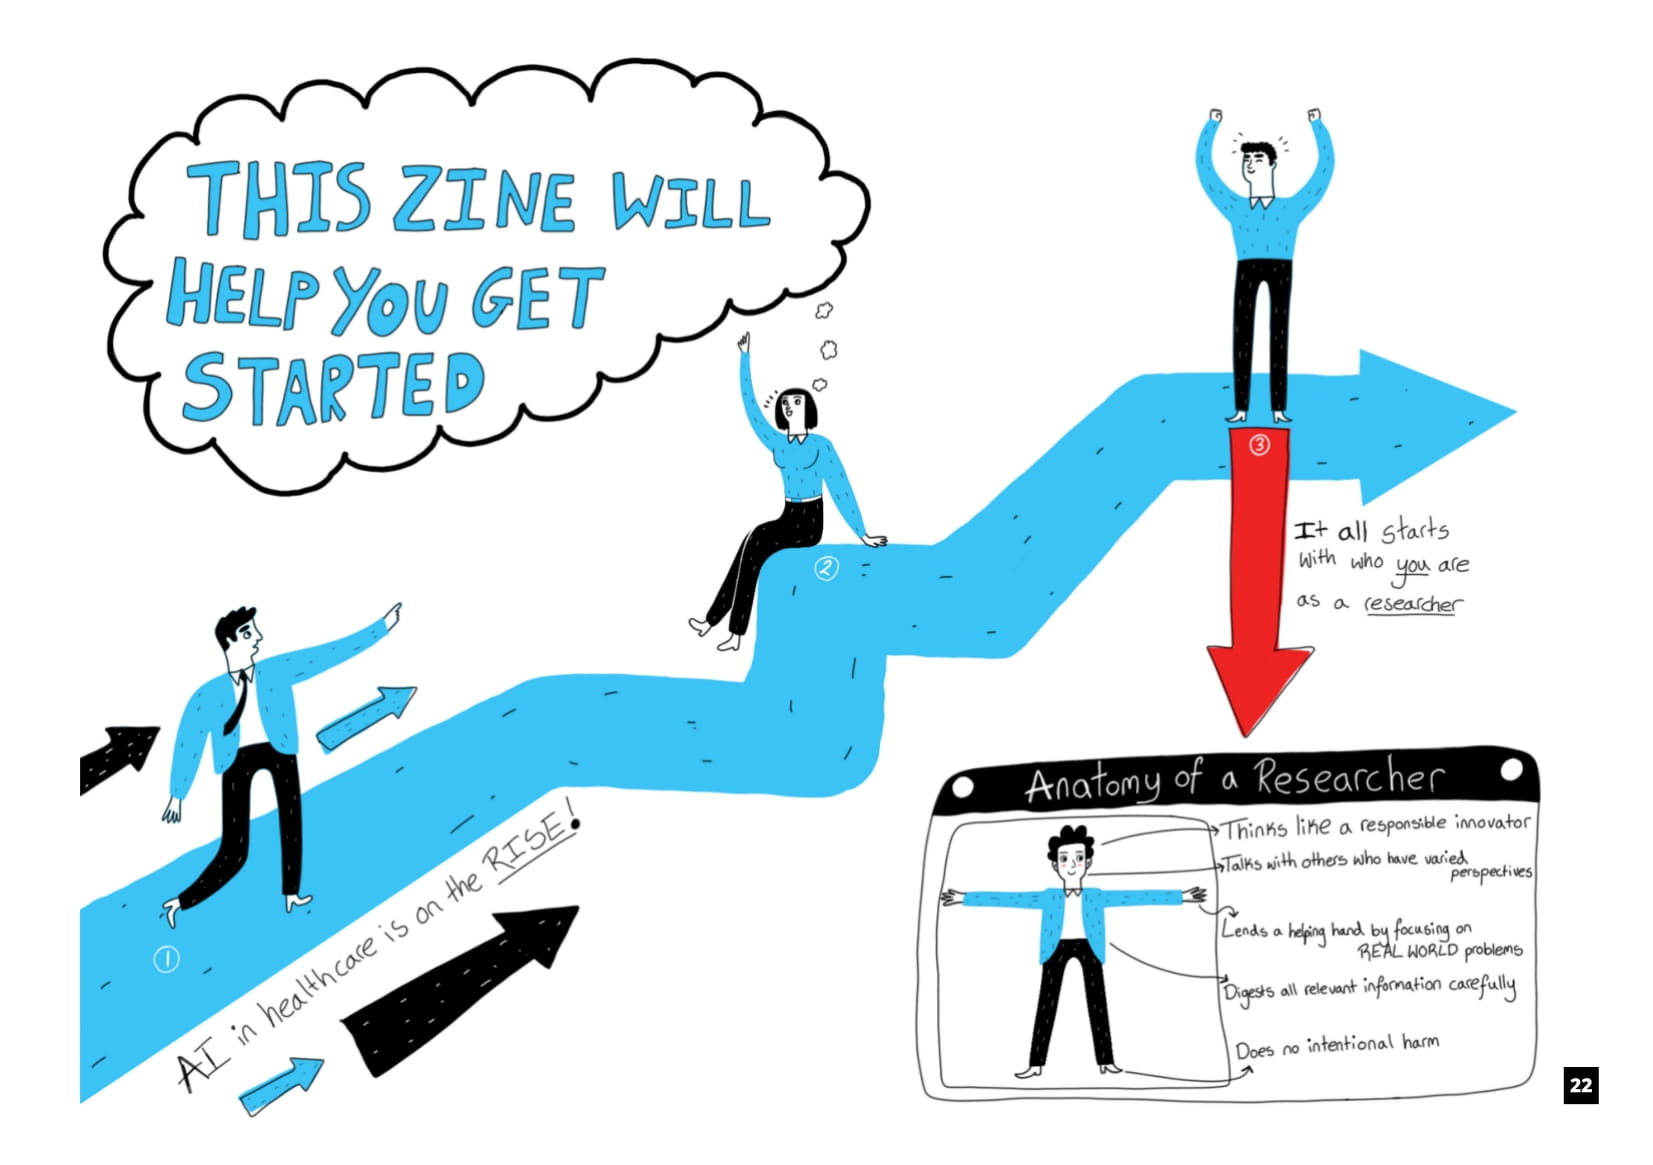 THIS ZINE WILL
HELP YOU GET
STARTED
1
AI in healthcare is on the RISE!
2
3
It all starts
with who you are
as a researcher
Anatomy of a Researcher
Thinks like a responsible innovator
Talks with others who have varied
perspectives
Lends a helping hand by focusing on
REAL WORLD problems
Digests all relevant information carefully
Does no intentional harm
22